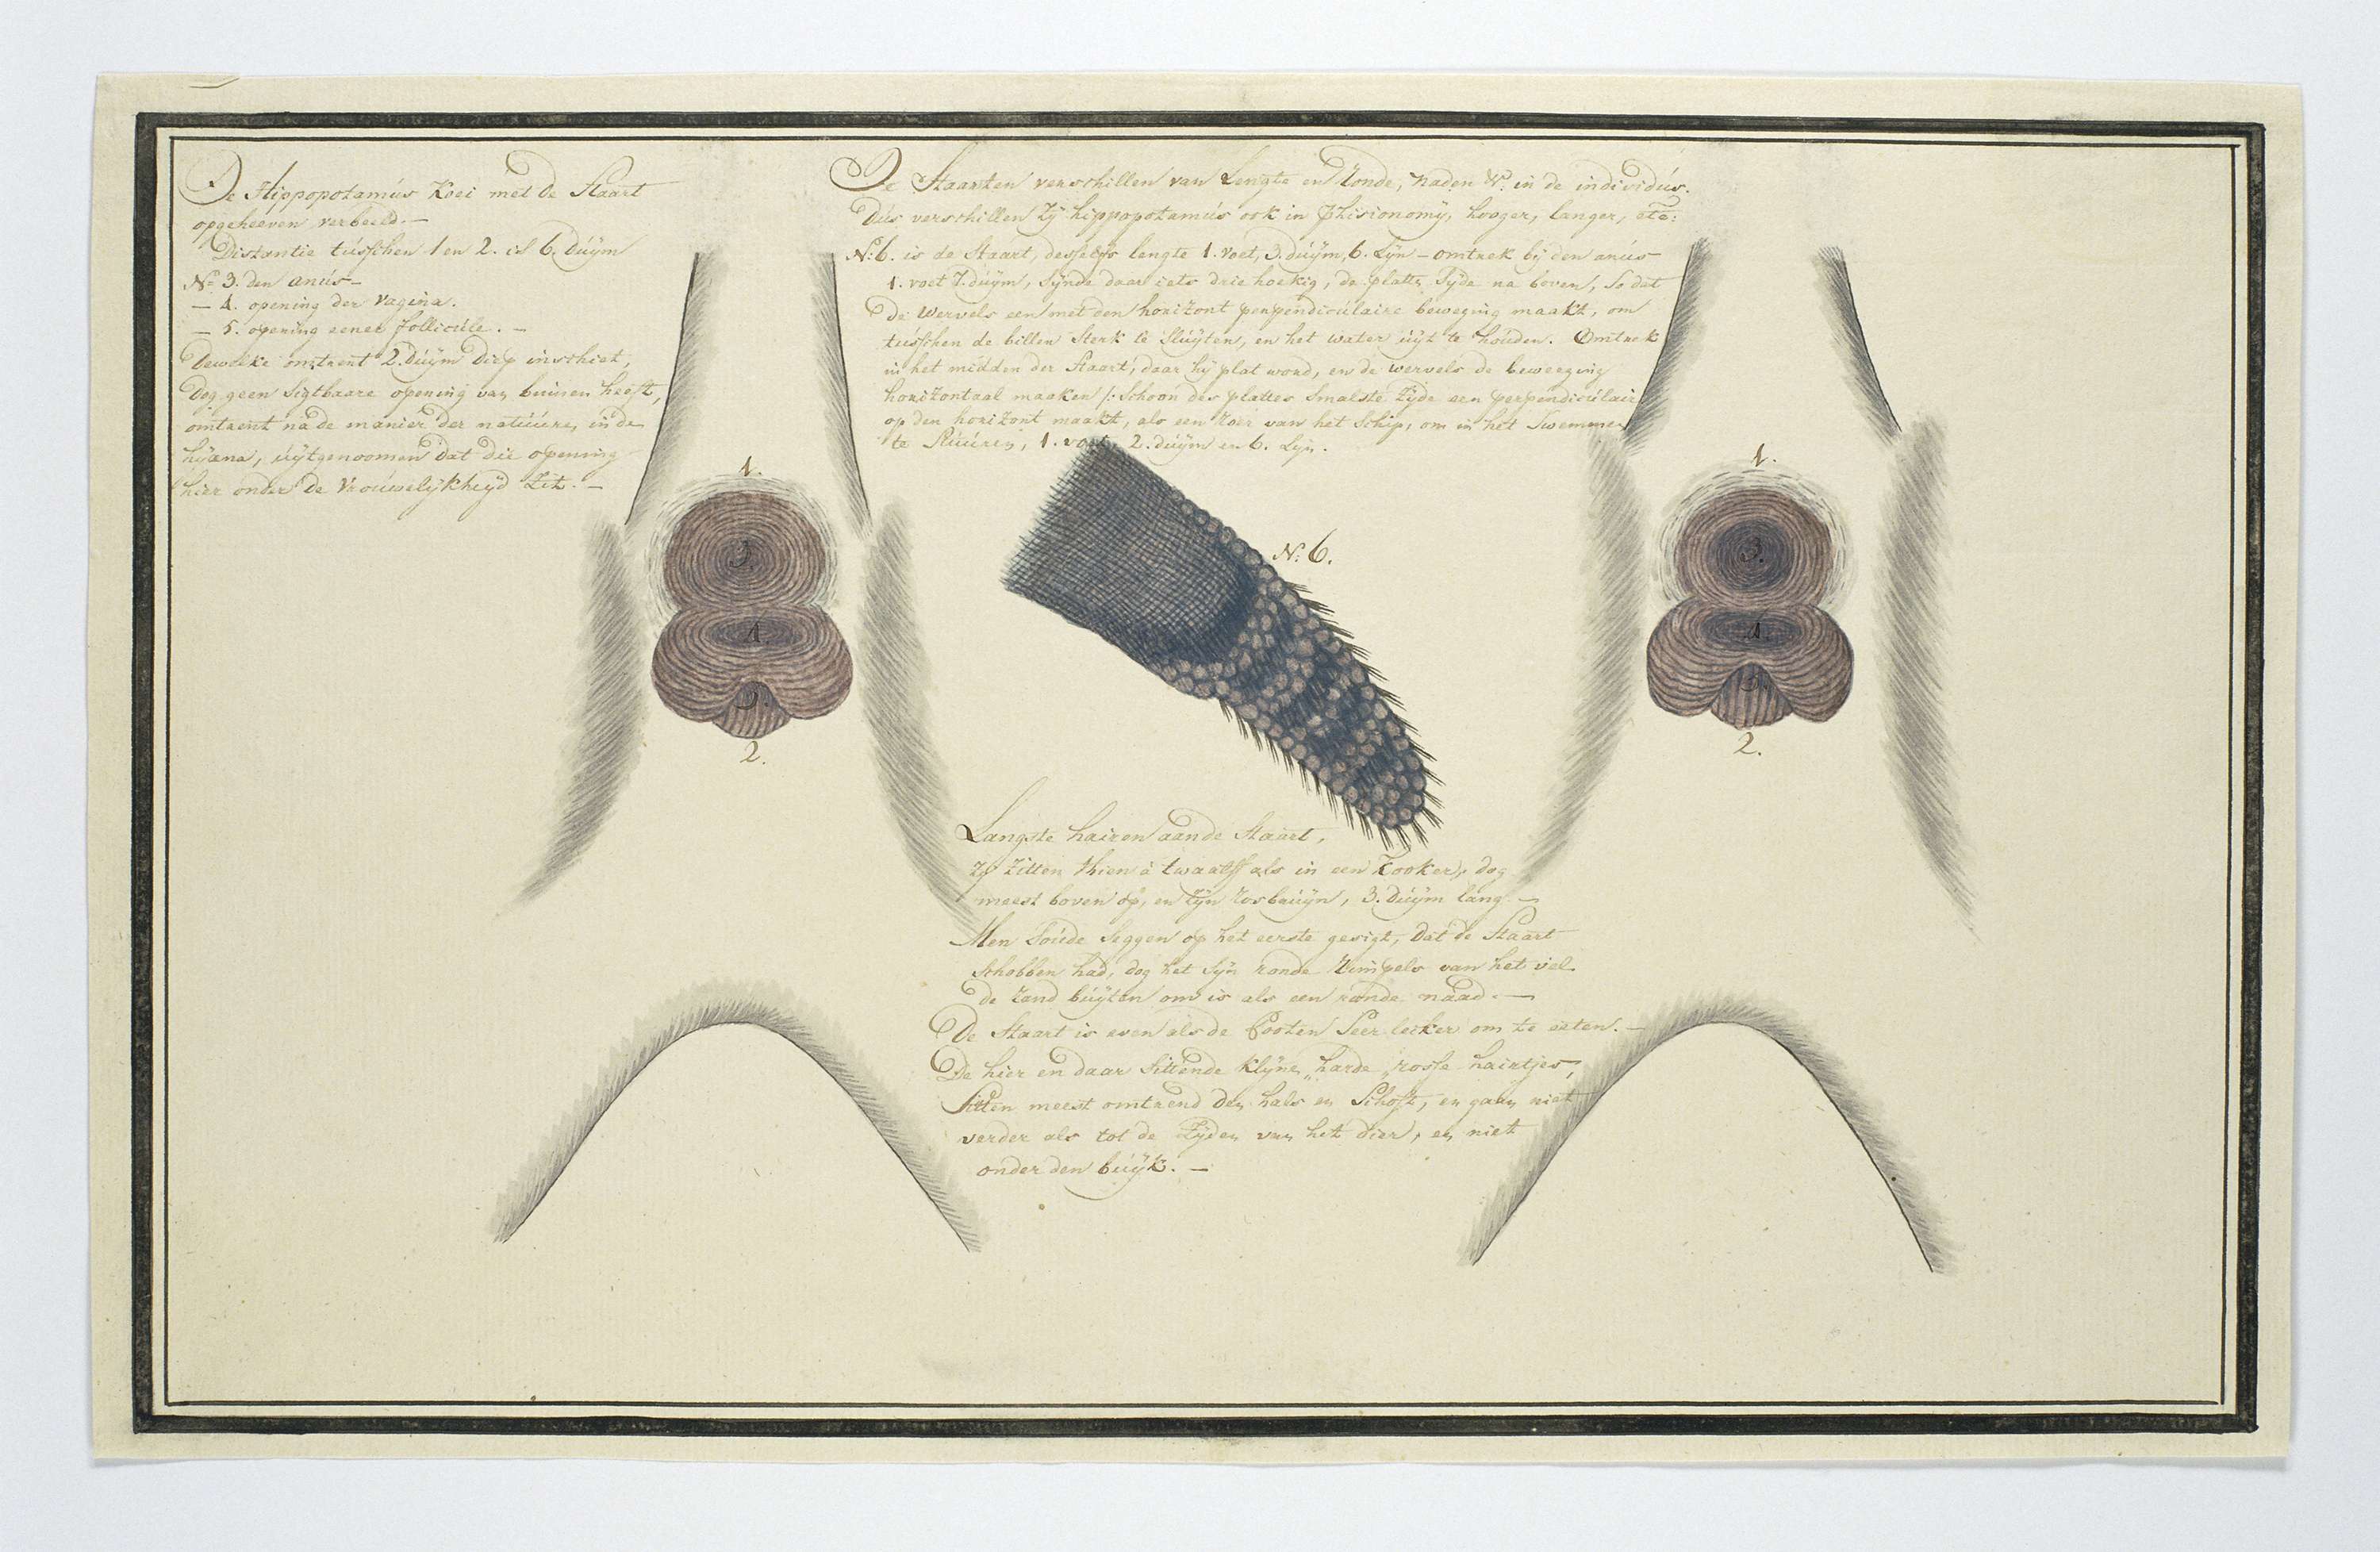 De Hippopotamús Koei met de Staart
opgeheeven verbeeld. —
Distantie tússchen 1 en 2. is 6. dúÿm
Nº 3. den anús —
— 4. opening der vagina.
— 5. opening eener follicúle. —
dewelke omtrent 2. dúÿm diep inschiet,
dog geen sigtbaare opening van binnen heeft,
omtrent na de manier der natúúre, in de
hÿæna, úÿtgenoomen dat die opening
hier onder de Vroúwelÿkheÿd zit. —
De Staarten verschillen van Lengte en Ronde, in de individús.
dús verschillen zÿ hippopotamús ook in Phisionomÿ, hooger, langer, etc:
N: 6. is de Staart, desselfs lengte 1. voet, 3. dúÿm, 6. Lÿn — omtrek bÿ den anús
1. voet 7. dúÿm, sÿnde daar iets driehoekig, de platte sÿde na boven, so dat
de wervels een met den horizont perpendicúlaire beweging maakt, om
tússchen de billen sterk te slúÿten, en het water úÿt te hoúden. Omtrek
in het midden der Staart, daar hÿ plat word, en de wervels de beweeging
horizontaal maaken /: schoon des plattes smalste zÿde een perpendicúlair
op den horizont maakt, als een roer van het schip, om in het swemmen
te stúúren, 1. voet, 2. dúÿm en 6. Lÿn.
1.
3.
4.
5.
2.
N: 6.
1.
3.
4.
5.
2.
Langste hairen aan de Staart,
zÿ zitten thien à twaalff als in een kooker, dog
meest boven op, en zÿn rosbrúÿn, 3. dúÿm lang —
Men soúde seggen op het eerste gesigt, dat de Staart
schobben had, dog het sÿn ronde rimpels van het vel
de rand búÿten om is als een ronde naad. —
De Staart is even als de Pooten seer lecker om te eeten. —
De hier en daar sittende klÿne, harde, rosse hairtjes,
sitten meest omtrend den hals en Schoft, en gaan niet
verder als tot de zÿden van het dier, en niet
onder den búÿk. —